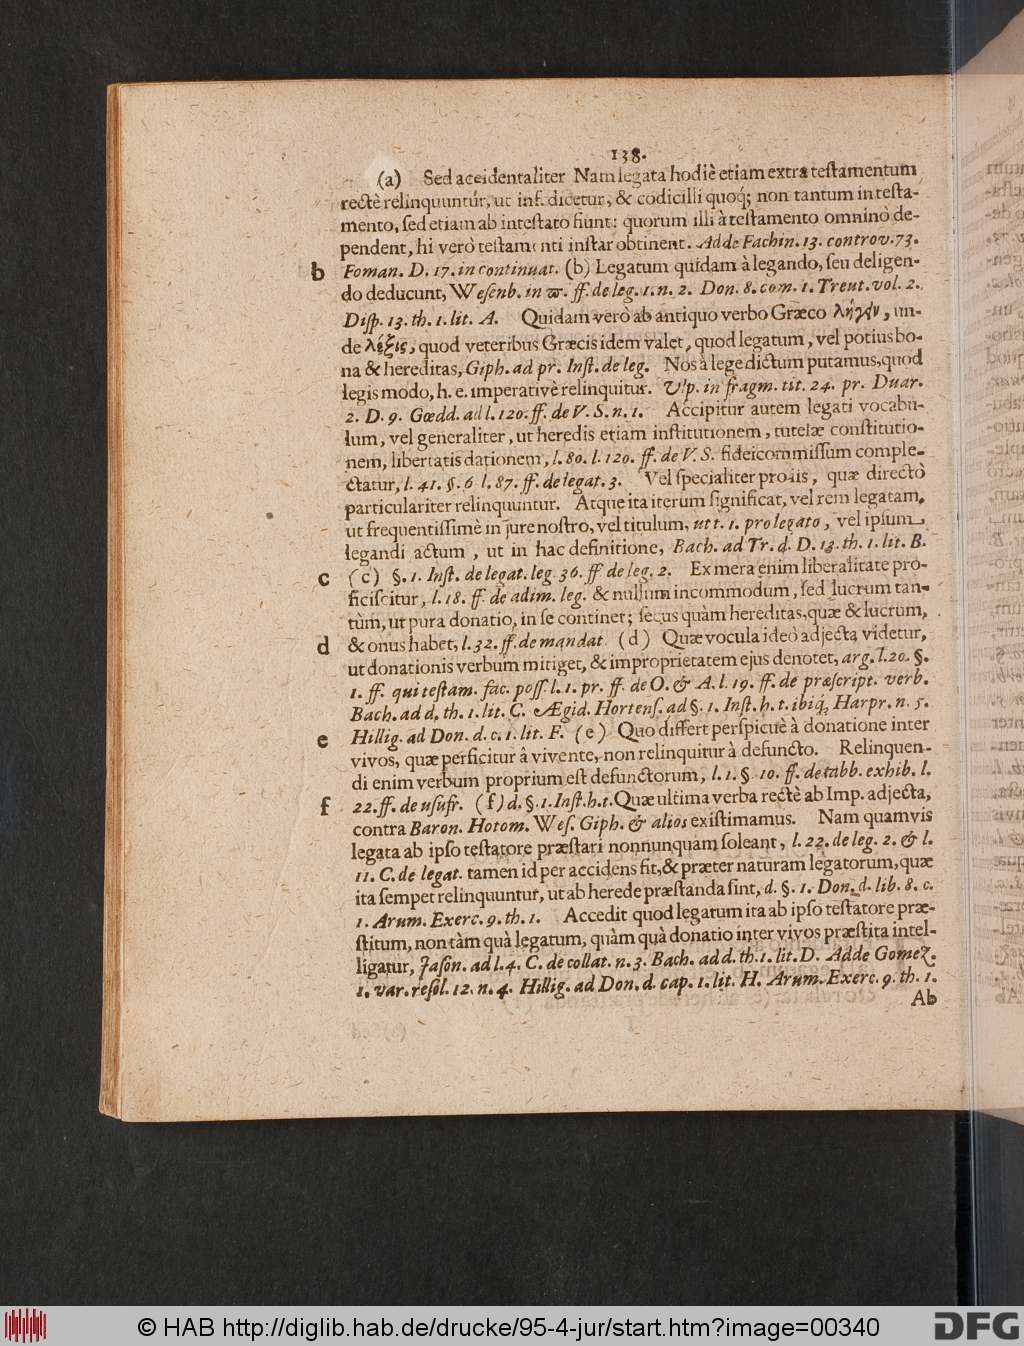 138.
(a) Sed accidentaliter Nam legata hodiè etiam extra testamentum
rectè relinquuntur, ut inf. dicetur, & codicilli quoq́; non tantum in testa-
mento, sed etiam ab intestato fiunt: quorum illi à testamento omninò de-
pendent, hi verò testamenti instar obtinent. Adde Fachin. 13. controv. 73.
b Foman. D. 17. in continuat. (b) Legatum quidam à legando, seu deligen-
do deducunt, Wesenb. in ϖ. ff. de leg. 1. n. 2. Don. 8. com. 1. Treut. vol. 2.
Disp. 13. th. 1. lit. A. Quidam verò ab antiquo verbo Græco λήγειν, un-
de λῆξις, quod veteribus Græcis idem valet, quod legatum, vel potius bo-
na & hereditas, Giph. ad pr. Inst. de leg. Nos à lege dictum putamus, quod
legis modo, h. e. imperativè relinquitur. Ulp. in fragm. tit. 24. pr. Duar.
2. D. 9. Gœdd. ad l. 120. ff. de V. S. n. 1. Accipitur autem legati vocabu-
lum, vel generaliter, ut heredis etiam institutionem, tutelæ constitutio-
nem, libertatis dationem, l. 80. l. 120. ff. de V. S. fideicommissum comple-
ctatur, l. 41. §. 6 l. 87. ff. de legat. 3. Vel specialiter pro iis, quæ directò
particulariter relinquuntur. Atque ita iterum significat, vel rem legatam,
ut frequentissimè in jure nostro, vel titulum, ut t. 1. pro legato, vel ipsum
legandi actum, ut in hac definitione, Bach. ad Tr. d. D. 13. th. 1. lit. B.
c (c) §. 1. Inst. de legat. leg. 36. ff de leg. 2. Ex mera enim liberalitate pro-
ficiscitur, l. 18. ff. de adim. leg. & nullum incommodum, sed lucrum tan-
tùm, ut pura donatio, in se continet; secus quàm hereditas, quæ & lucrum,
d & onus habet, l. 32. ff. de mandat. (d) Quæ vocula ideò adjecta videtur,
ut donationis verbum mitiget, & improprietatem ejus denotet, arg. l. 20. §.
1. ff. qui testam. fac. poss. l. 1. pr. ff. de O. & A. l. 19. ff. de præscript. verb.
Bach. ad d. th. 1. lit. C. Ægid. Hortens. ad §. 1. Inst. h. t. ibiq́; Harpr. n. 5.
e Hillig. ad Don. d. c. 1. lit. F. (e) Quo differt perspicuè à donatione inter
vivos, quæ perficitur â vivente, non relinquitur à defuncto. Relinquen-
di enim verbum proprium est defunctorum, l. 1. § 10. ff. de tabb. exhib. l.
f 22. ff. de usufr. (f) d. §. 1. Inst. h. t. Quæ ultima verba rectè ab Imp. adjecta,
contra Baron. Hotom. Wes. Giph. & alios existimamus. Nam quamvis
legata ab ipso testatore præstari nonnunquam soleant, l. 22. de leg. 2. & l.
11. C. de legat. tamen id per accidens fit, & præter naturam legatorum, quæ
ita semper relinquuntur, ut ab herede præstanda sint, d. §. 1. Don. d. lib. 8. c.
1. Arum. Exerc. 9. th. 1. Accedit quod legatum ita ab ipso testatore præ-
stitum, non tàm quà legatum, quàm quà donatio inter vivos præstita intel-
ligatur, Jason. ad l. 4. C. de collat. n. 3. Bach. ad d. th. 1. lit. D. Adde Gomez.
1. var. resol. 12. n. 4. Hillig. ad Don. d. cap. 1. lit. H. Arum. Exerc. 9. th. 1.
Ab
© HAB http://diglib.hab.de/drucke/95-4-jur/start.htm?image=00340
DFG